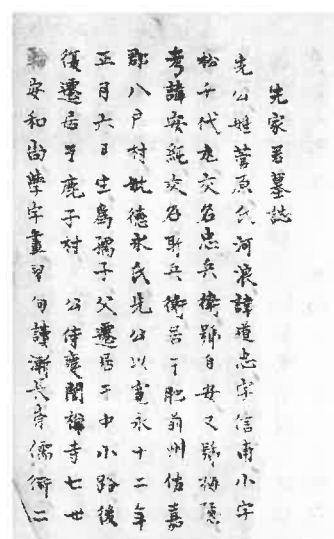 先家君墓誌
先公姓菅原氏河浪諱道忠字信甫小字
松千代丸交名忠兵衛號自安又號梅隱
考諱安純交名勘兵衛居于肥前州佐嘉
郡八戶村妣德永氏先公以寬永十二年
正月六日生爲孺子父遷居于中小路後
復遷居于鹿子村 公侍慶誾禪寺七世
安和尚學字畫習句讀漸長字儒術二